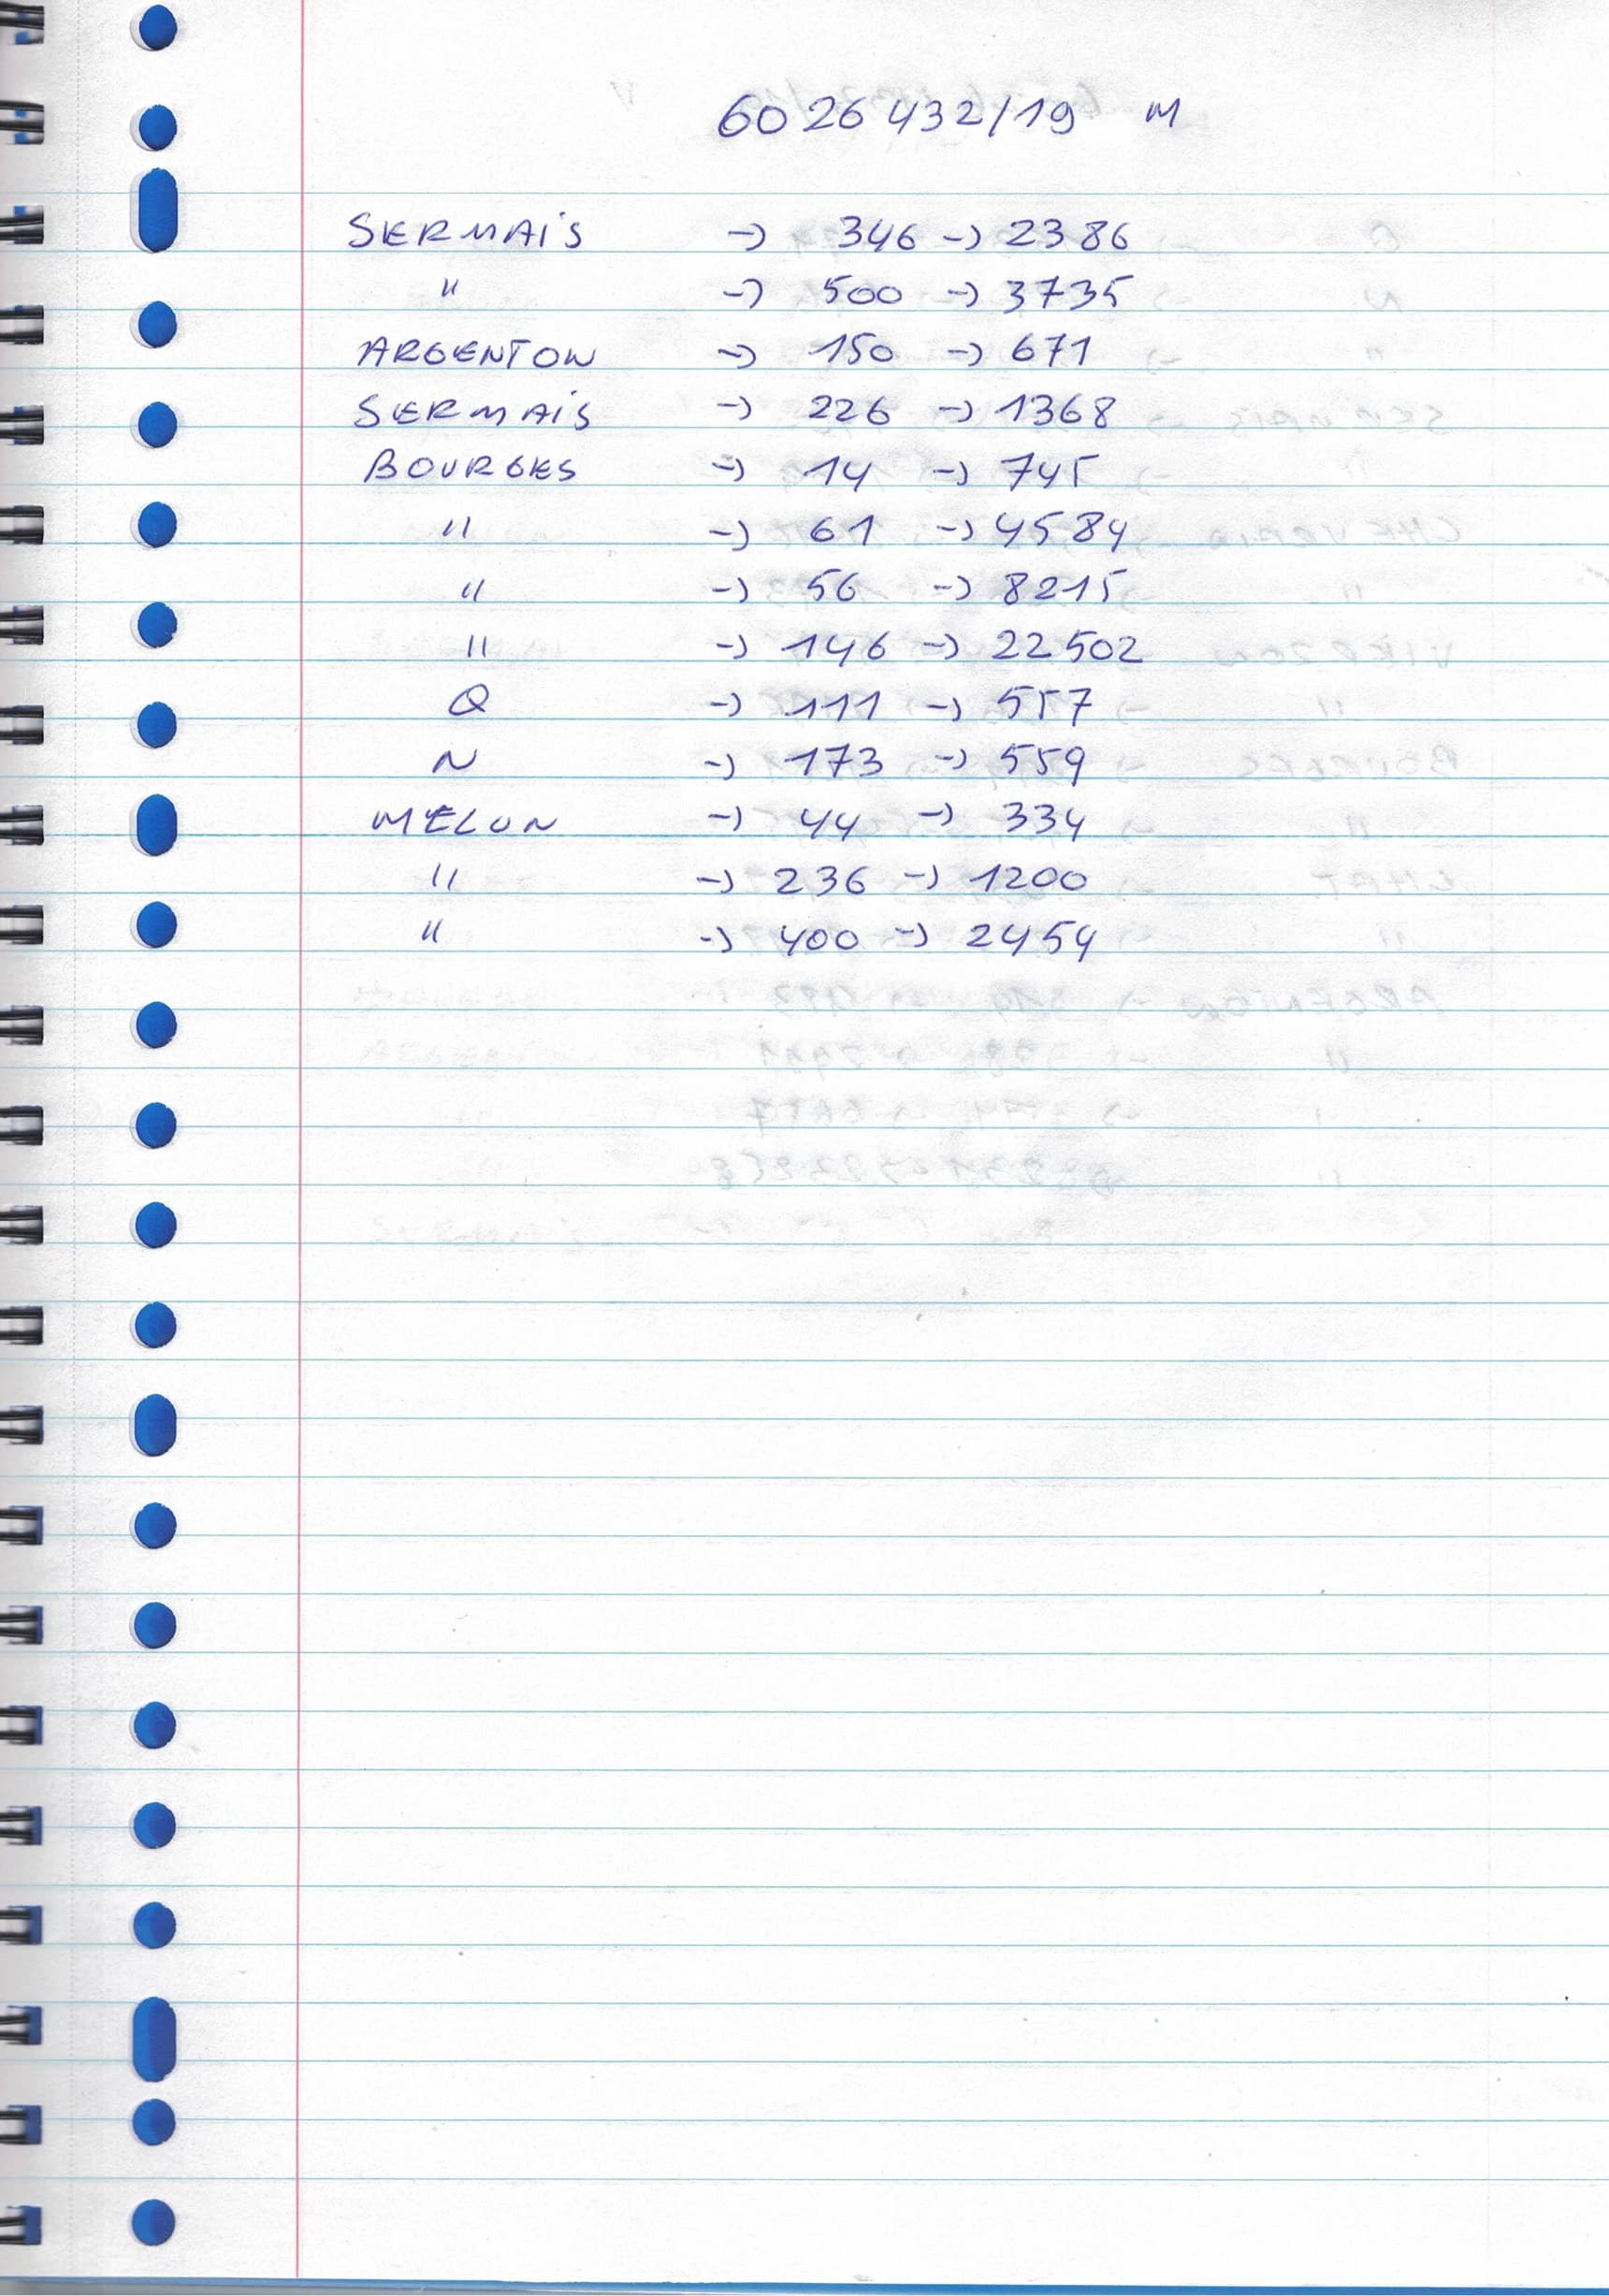 6026432/19 M
SERMAiS -> 346 -> 2386
" -> 500 -> 3735
ARGENTON -> 150 -> 671
SERMAiS -> 226 -> 1368
BOURGES -> 14 -> 745
" -> 61 -> 4584
" -> 56 -> 8215
" -> 146 -> 22502
Q -> 111 -> 557
N -> 173 -> 559
MELUN -> 44 -> 334
" -> 236 -> 1200
" -> 400 -> 2454